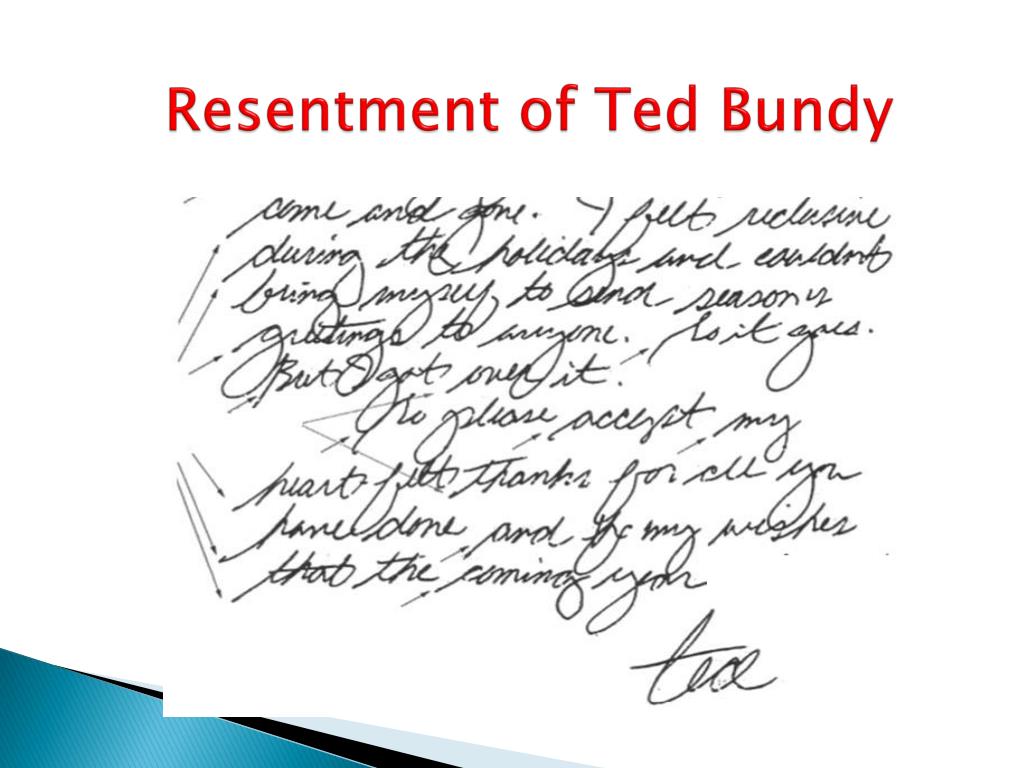 Resentment of Ted Bundy
come and gone. I felt reclusive
during the holidays and couldn't
bring myself to send season's
greetings to anyone. So it goes.
But I got over it.
So please accept my
heart felt thanks for all you
have done and my wishes
that the coming year
ted